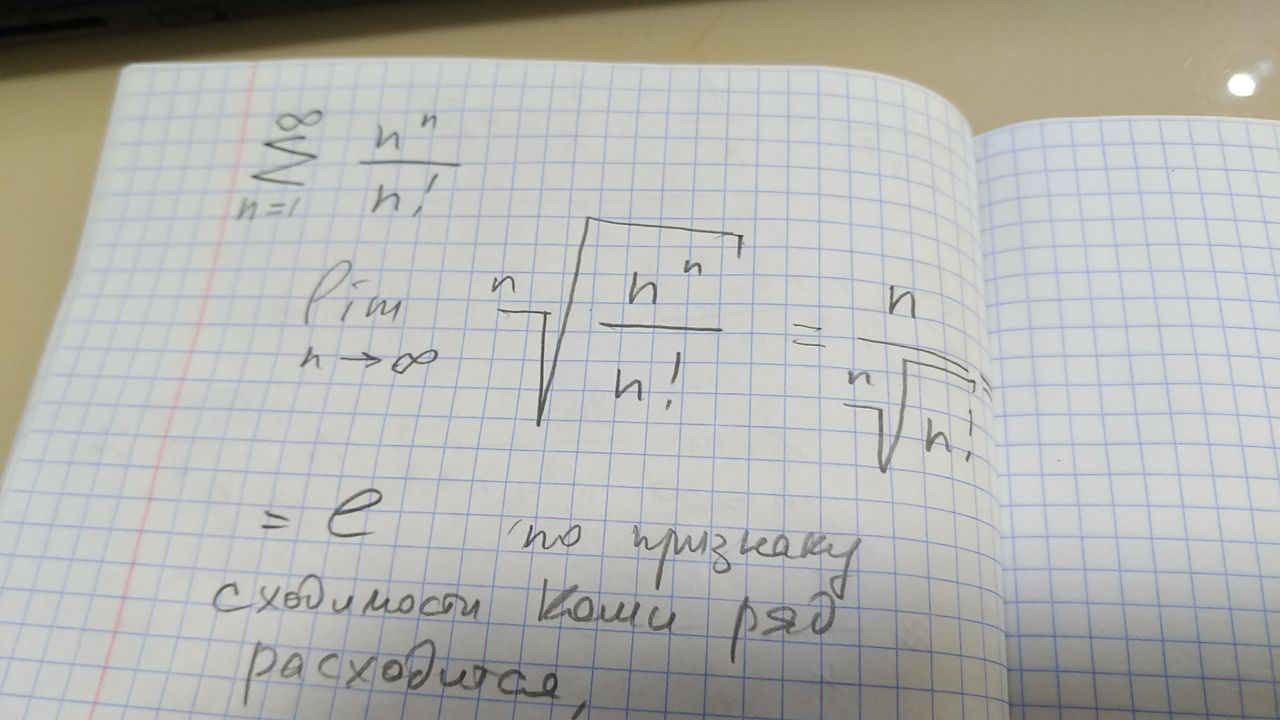 ∞
∑ n^n / n!
n=1
lim n√(n^n / n!) = n / n√(n!) =
n → ∞
= e по признаку
сходимости Коши ряд
расходится,